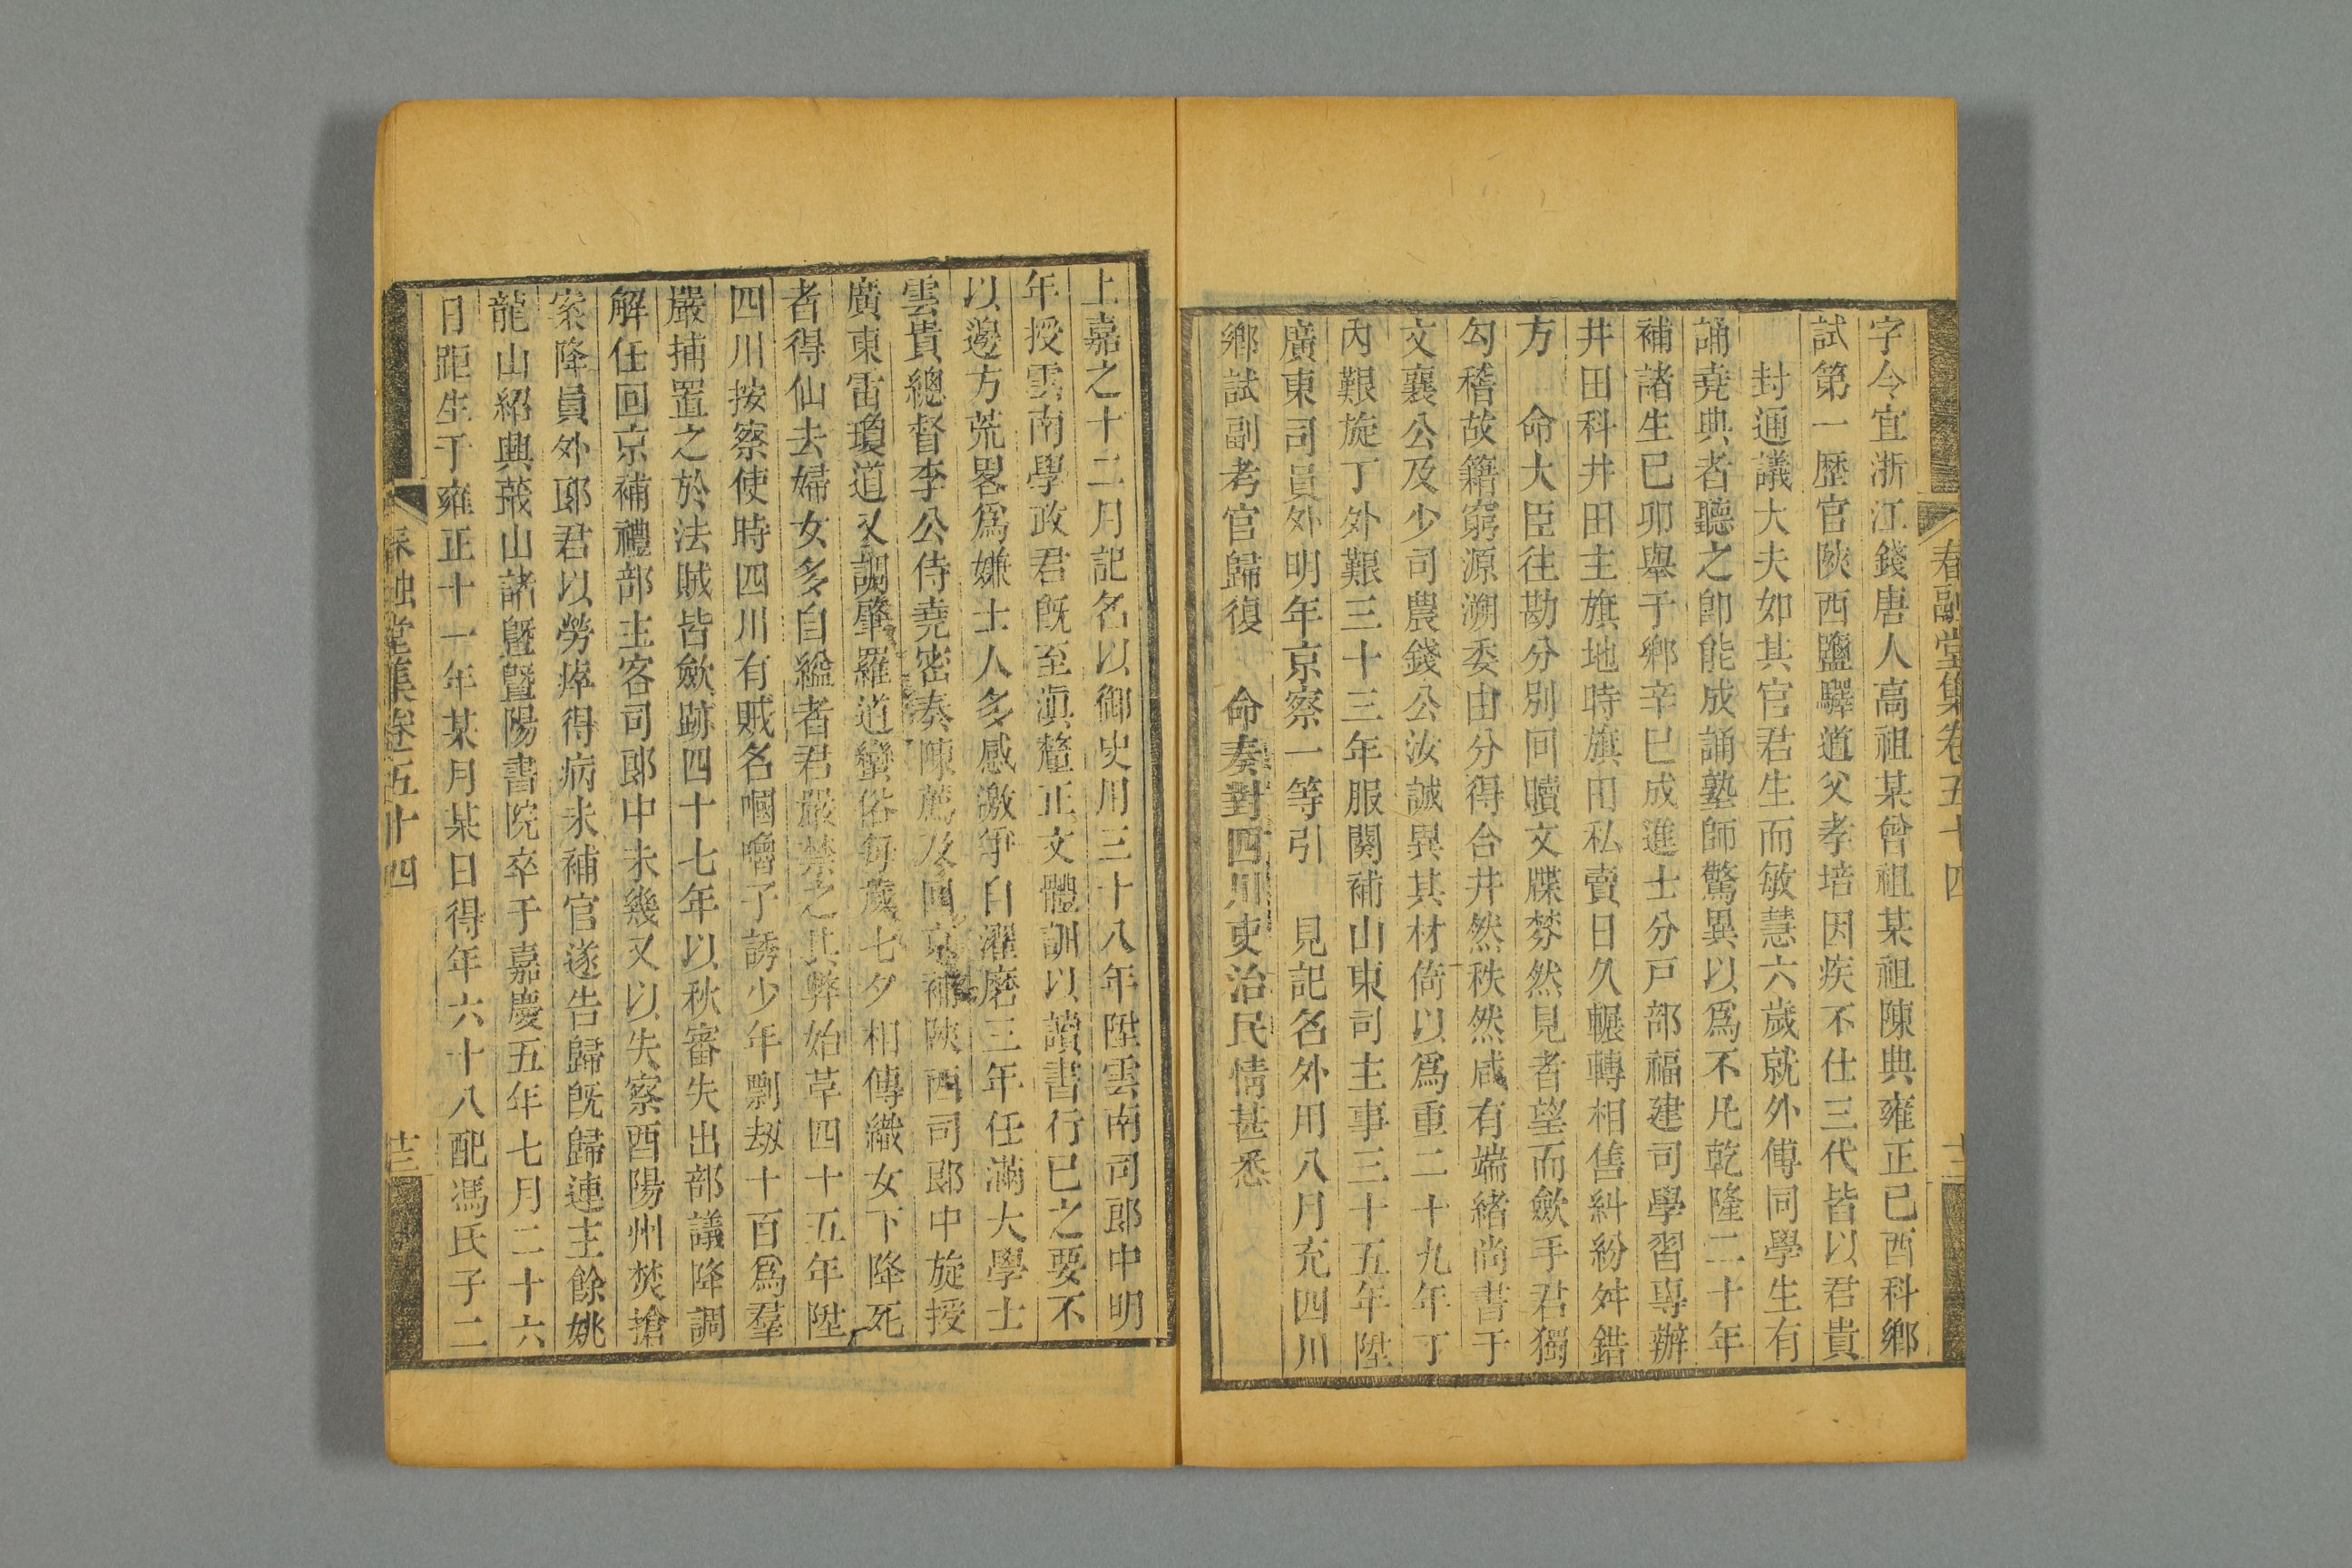 春融堂集卷五十四
十二
字今宜浙江錢唐人高祖某曾祖某祖陳典雍正己酉科鄉
試第一歷官陝西鹽驛道父孝培因疾不仕三代皆以君貴
封通議大夫如其官君生而敏慧六歲就外傅同學生有
誦堯典者聽之卽能成誦塾師驚異以爲不凡乾隆二十年
補諸生己卯舉于鄉辛巳成進士分戸部福建司學習專辦
井田科井田主旗地時旗田私賣日久輾轉相售糾紛舛錯
方 命大臣往勘分別回贖文牒棼然見者望而歛手君獨
勾稽故籍窮源溯委由分得合井然秩然咸有端緒尚書于
文襄公及少司農錢公汝誠異其材倚以爲重二十九年丁
內艱旋丁外艱三十三年服闋補山東司主事三十五年陞
廣東司員外明年京察一等引 見記名外用八月充四川
鄉試副考官歸復 命奏對四川吏治民情甚悉
上嘉之十二月記名以御史用三十八年陞雲南司郎中明
年授雲南學政君旣至滇釐正文體訓以讀書行己之要不
以邊方荒畧爲嫌士人多感激爭自濯磨三年任滿大學士
雲貴總督李公侍堯密奏陳薦及回京補陝西司郎中旋授
廣東雷瓊道又調肇羅道蠻俗每歲七夕相傳織女下降死
者得仙去婦女多自縊者君嚴禁之其弊始革四十五年陞
四川按察使時四川有賊名嘓嚕子誘少年剽刼十百爲羣
嚴捕置之於法賊皆歛跡四十七年以秋審失出部議降調
解任回京補禮部主客司郎中未幾又以失察酉陽州焚搶
案降員外郎君以勞瘁得病未補官遂告歸旣歸連主餘姚
龍山紹興蕺山諸曁曁陽書院卒于嘉慶五年七月二十六
日距生于雍正十一年某月某日得年六十八配馮氏子二
春融堂集卷五十四
十三